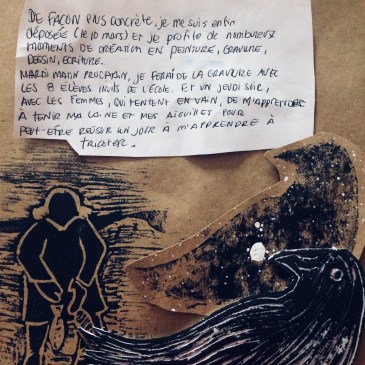 DE FAÇON PLUS CONCRÈTE, je me suis enfin
déposée (le 10 mars) et je profite de nombreux
MOMENTS DE CRÉATION EN PEINTURE, GRAVURE,
DESSIN, ECRITURE.
MARDI MATIN PROCHAIN, JE FERAI DE LA GRAVURE AVEC
LES 8 ÉLÈVES INUITS DE L'ÉCOLE. ET UN JEUDI SOIR,
AVEC LES FEMMES, QUI TENTENT EN VAIN, DE M'APPRENDRE
À TENIR MA LAINE ET MES AIGUILLES POUR
PEUT-ÊTRE RÉUSSIR UN JOUR À M'APPRENDRE À
TRICOTER.